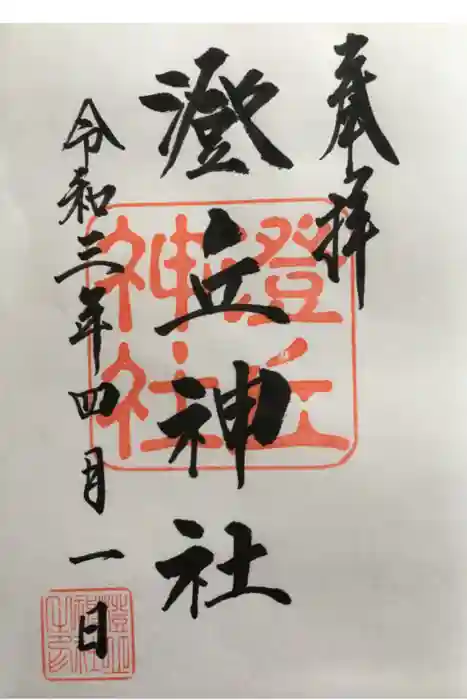 奉拝
澄丘神社
令和三年四月一日
澄丘
神社